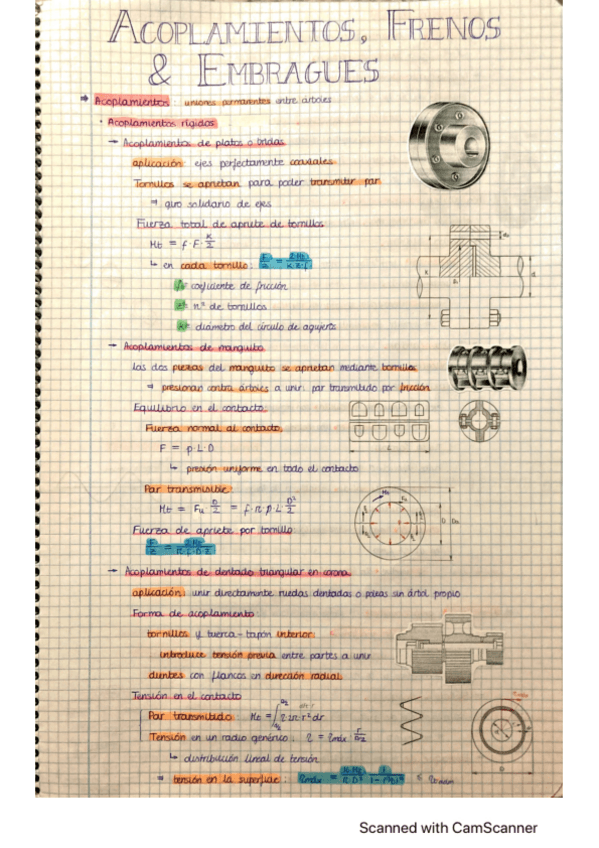 ACOPLAMIENTOS, FRENOS
& EMBRAGUES
⇒ Acoplamientos: uniones permanentes entre árboles
• Acoplamientos rígidos
→ Acoplamientos de platos o bridas
aplicación: ejes perfectamente coaxiales
Tornillos se aprietan para poder transmitir par
⇒ giro solidario de ejes
Fuerza total de apriete de tornillos
Mt = f · F · K/2
↳ en cada tornillo: F/z = 2·Mt/K·z·f
f = coeficiente de fricción
z = nº de tornillos
K = diámetro del círculo de agujeros
→ Acoplamientos de manguito
las dos piezas del manguito se aprietan mediante tornillos
⇒ presionan contra árboles a unir: par transmitido por fricción
Equilibrio en el contacto
Fuerza normal al contacto
F = p·L·D
↳ presión uniforme en todo el contacto
L
Par transmisible:
Mt = Fu D/2 = f·π·p·L·D²/2
Fuerza de apriete por tornillo
→ Acoplamientos de dentado triangular en corona
aplicación: unir directamente ruedas dentadas o poleas sin árbol propio
Forma de acoplamiento
tornillos y tuerca-tapón interior:
introduce tensión previa entre partes a unir
dientes con flancos en dirección radial
Tensión en el contacto
Par transmitido: Mt =
Tensión en un radio genérico:
↳ distribución lineal de tensión
D
⇒ tensión en la superficie:
Scanned with CamScanner